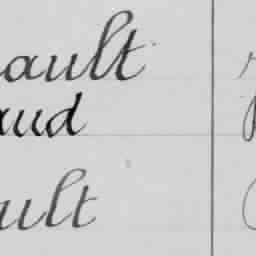 ault
aud
ult